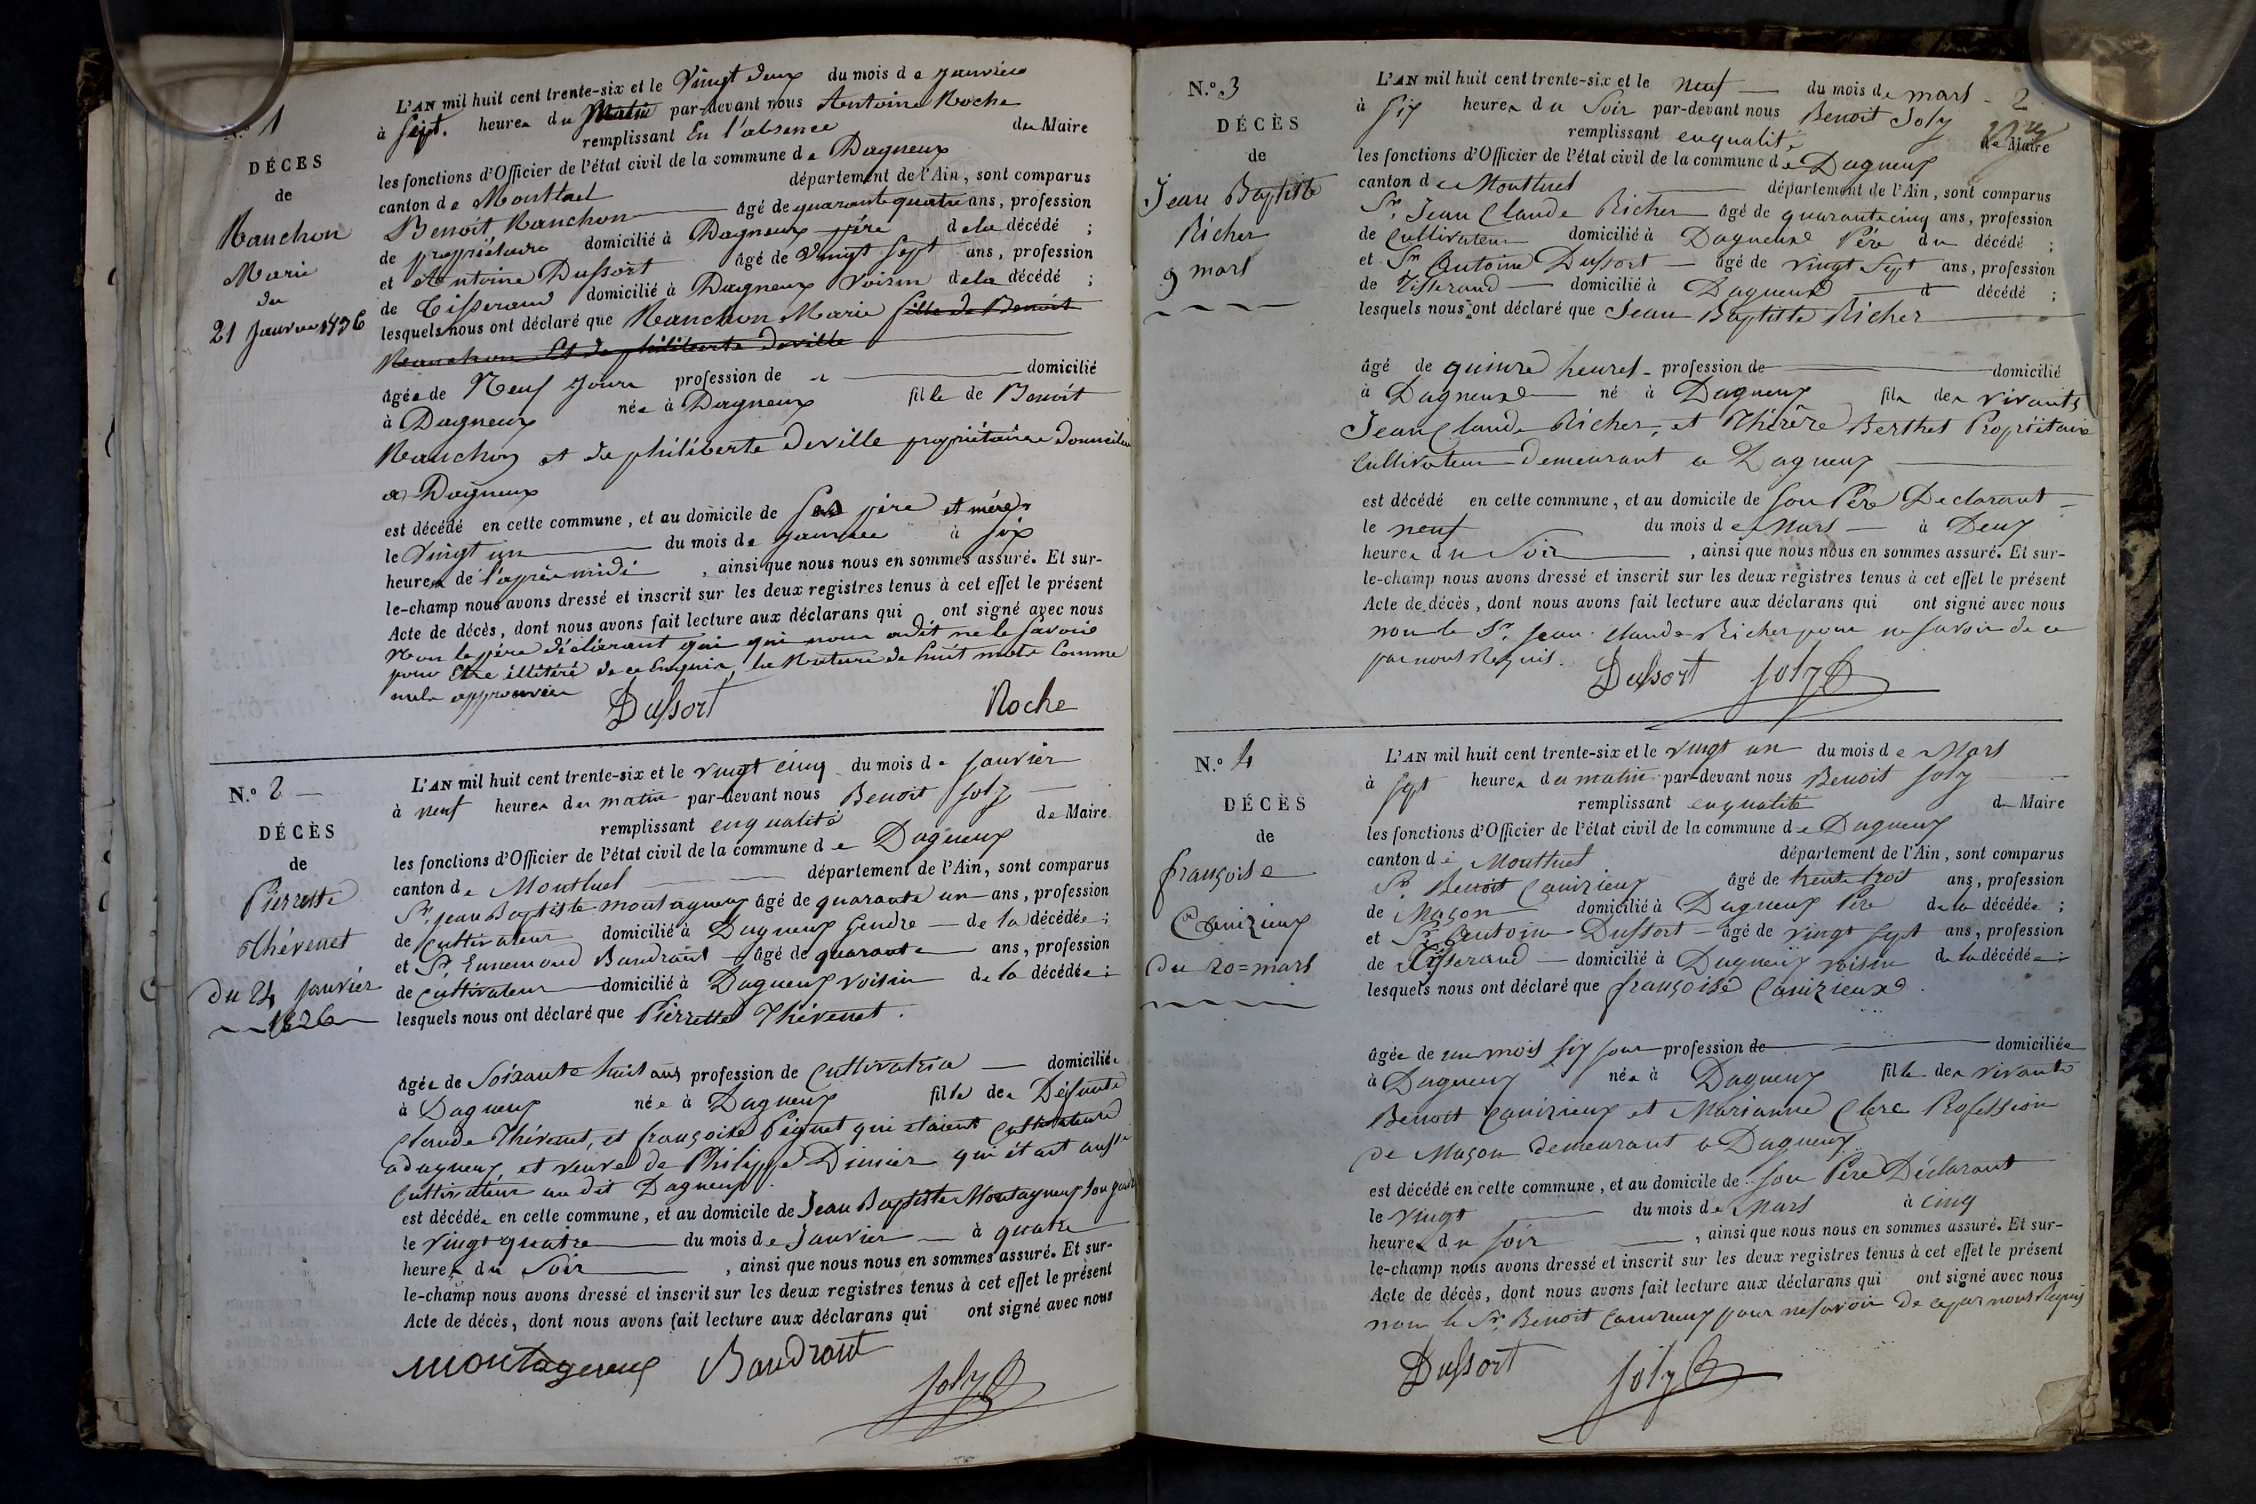 N.º 1
DÉCES
de
Ranchon
Marie
du
21 Janvier 1836
L'AN mil huit cent trente-six et le Vingt deux du mois de janvier
à Sept. heures du Matin par-devant nous Antoine Roche
remplissant En l'absence du Maire
les fonctions d'Officier de l'état civil de la commune de Dagneux
canton de Montluel département de l'Ain, sont comparus
Benoit Ranchon âgé de quarante quatre ans, profession
de propriétaire domicilié à Dagneux père de la décédé ;
et Antoine Dussort âgé de Vingt Sept ans, profession
de Tisserand domicilié à Dagneux Voisin de la décédé ;
lesquels nous ont déclaré que Ranchon Marie fille de Benoit
Ranchon Et de philiberte deville
âgée de Neuf jours profession de domicilié
à Dagneux née à Dagneux fille de Benoit
Ranchon et de philiberte deville propriétaires domicilié
a Dagneux
est décédé en cette commune, et au domicile de Ses père et mère
le Vingt un du mois de janvier à six
heures de l'après midi, ainsi que nous nous en sommes assuré. Et sur-
le-champ nous avons dressé et inscrit sur les deux registres tenus à cet effet le présent
Acte de décès, dont nous avons fait lecture aux déclarans qui ont signé avec nous
Non le père déclarant qui nous a dit ne le savoir
pour Etre illitéré de ce Enquis, la Rature de huit mots Comme
nuls approuvée
Dussort Roche
N.º 2
DÉCÈS
de
Pierrette
Thévenet
du 24 janvier
1836
L'AN mil huit cent trente-six et le vingt cinq du mois de janvier
à neuf heures du matin par-devant nous Benoit Joly
remplissant en qualité de Maire
les fonctions d'Officier de l'état civil de la commune de Dagneux
canton de Montluel département de l'Ain, sont comparus
Sr. jean Baptiste montagneux âgé de quarante un ans, profession
de cultivateur domicilié à Dagneux Gendre de la décédée ;
et Sr. Ennemond Baudrant âgé de quarante ans, profession
de cultivateur domicilié à Dagneux voisin de la décédée ;
lesquels nous ont déclaré que Pierrette Thévenet.
âgée de Soixante huit ans profession de cultivatrice domiciliée
à Dagneux née à Dagneux fille des Défunts
Claude Thévenet, et françoise Piquet qui etaient Cultivateurs
a dagneux, et veuve de Philippe Dimier qui était aussi
Cultivateur au dit Dagneux.
est décédée en cette commune, et au domicile de Jean Baptiste Montagneux son gendre
le vingt quatre du mois de Janvier à quatre
heures du Soir, ainsi que nous nous en sommes assuré. Et sur-
le-champ nous avons dressé et inscrit sur les deux registres tenus à cet effet le présent
Acte de décès, dont nous avons fait lecture aux déclarans qui ont signé avec nous
montagneux Baudrant
Joly
N.º 3
DÉCÈS
de
Jean Baptiste
Richer
9 mars
2
L'AN mil huit cent trente-six et le neuf du mois de mars
à Six heures du Soir par-devant nous Benoit Joly
remplissant en qualité de Maire
les fonctions d'Officier de l'état civil de la commune de Dagneux
canton de Montluel département de l'Ain, sont comparus
Sr. Jean Claude Richer âgé de quarante cinq ans, profession
de Cultivateur domicilié à Dagneux Père du décédé ;
et Sr. Antoine Dussort âgé de vingt Sept ans, profession
de Tisserand domicilié à Dagneux d décédé ;
lesquels nous ont déclaré que Jean Baptiste Richer
âgé de quinze heures profession de domicilié
à Dagneux né à Dagneux fils des vivants
Jean Claude Richer, et Thérèse Berthet Propriétaire
Cultivateur demeurant a Dagneux
est décédé en cette commune, et au domicile de Son Père Declarant
le neuf du mois de Mars à Deux
heures du Soir, ainsi que nous nous en sommes assuré. Et sur-
le-champ nous avons dressé et inscrit sur les deux registres tenus à cet effet le présent
Acte de décès, dont nous avons fait lecture aux déclarans qui ont signé avec nous
non le Sr. Jean Claude Richer pour ne Savoir de ce
par nous Requis.
Dussort Joly
N.º 4
DÉCÈS
de
françoise
Canizieux
Du 20 = mars
L'AN mil huit cent trente-six et le vingt un du mois de Mars
à Sept heures du matin par-devant nous Benoit Joly
remplissant en qualité de Maire
les fonctions d'Officier de l'état civil de la commune de Dagneux
canton de Montluel département de l'Ain, sont comparus
Sr. Benoit Canizieux âgé de trente trois ans, profession
de Maçon domicilié à Dagneux Père de la décédée ;
et Sr. Antoine Dussort âgé de vingt sept ans, profession
de Tisserand domicilié à Dagneux voisin de la décédée ;
lesquels nous ont déclaré que françoise Canizieux.
âgée de un mois six jours profession de domiciliée
à Dagneux née à Dagneux fille des vivants
Benoit Canizieux et Marianne Clerc Profession
de Maçon demeurant a Dagneux
est décédé en cette commune, et au domicile de Son Père Déclarant
le vingt du mois de Mars à cinq
heures du Soir, ainsi que nous nous en sommes assuré. Et sur-
le-champ nous avons dressé et inscrit sur les deux registres tenus à cet effet le présent
Acte de décès, dont nous avons fait lecture aux déclarans qui ont signé avec nous
non le Sr. Benoit Canizieux pour ne savoir de ce par nous Requis
Dussort Joly